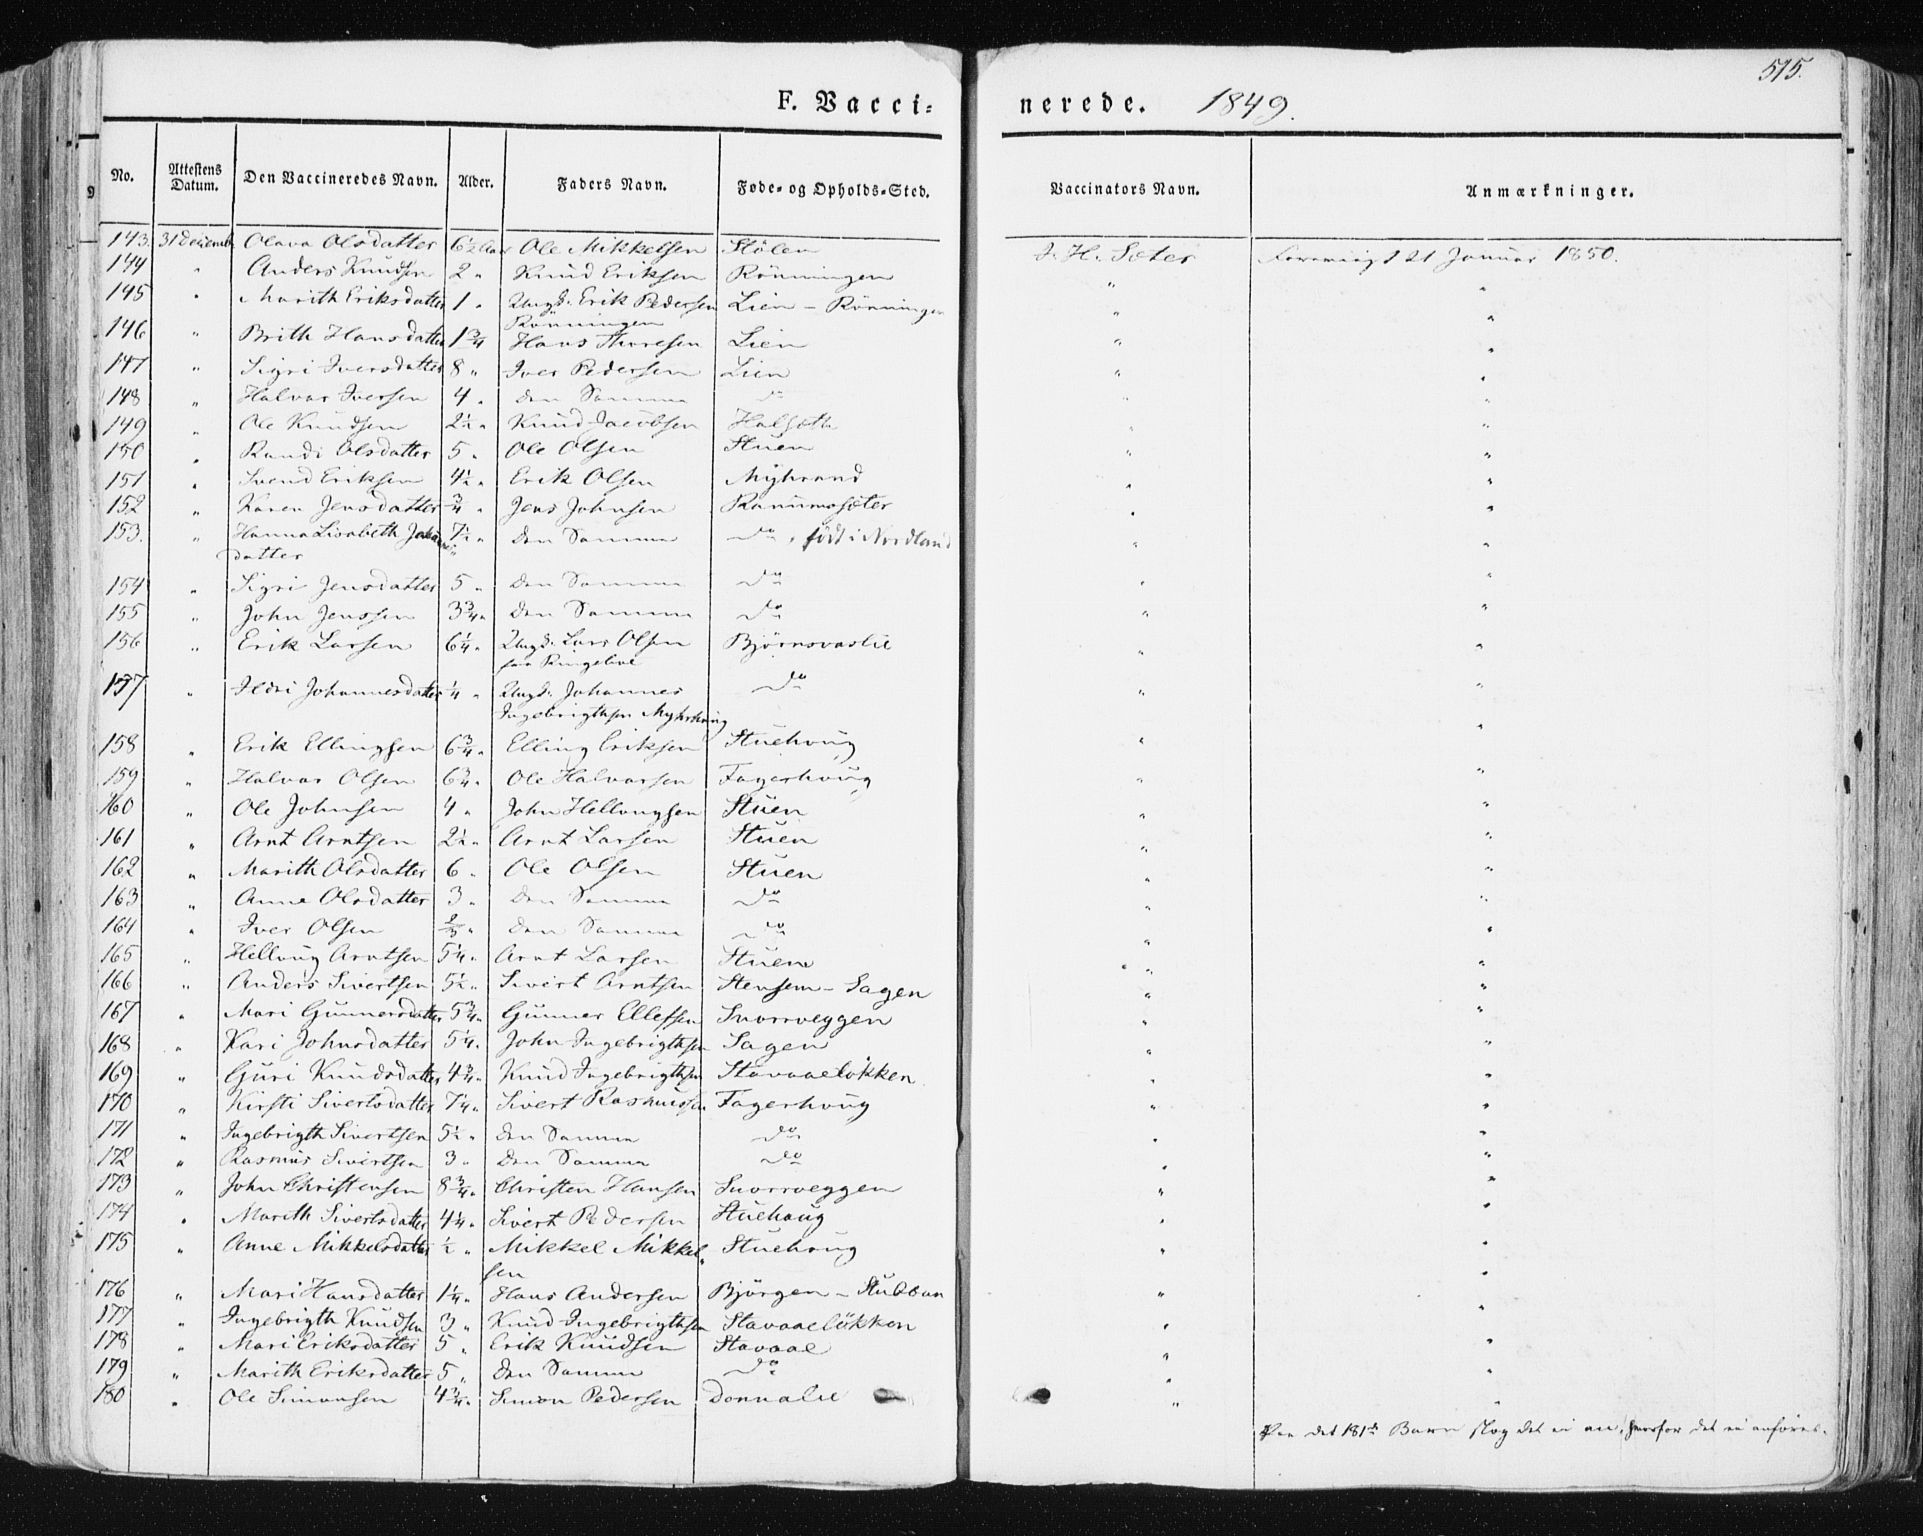 515.
F. Vacci=
nerede. 1849.
No. Attestens Datum. Den Vaccineredes Navn. Alder. Faders Navn. Føde- og Opholds-Sted. Vaccinators Navn. Anmærkninger.
143. 31 Decemb. Olava Olsdatter 6½ Aar Ole Mikkelsen Stölen J. H. Sæter Foreviist 21 Januar 1850.
144 " Anders Knudsen 2 " Knud Eriksen Rönningen " "
145 " Marith Eriksdatter 1 " Ungk. Erik Pedersen Lien - Rönningen " "
Rönningen
146 " Brith Hansdatter 1¾ Hans Thoresen Lien " "
147 " Sigri Iversdatter 8 " Iver Pedersen Lien " "
148 " Halvor Iversen 4 " den Samme do " "
149 " Ole Knudsen 2½ " Knud Jacobsen Halsetth " "
150 " Randi Olsdatter 5 " Ole Olsen Stuen " "
151 " Svend Eriksen 4½ " Erik Olsen Myhrand " "
152 " Karen Jensdatter ¾ " Jens Johnsen Ranumsæter " "
153. " Hanna Lisabeth 7½ " den Samme do, födt i Nordland " "
datter
154 " Sigri Jensdatter 5 " den Samme do " "
155 " John Jenssen 3¾ " den Samme do " "
156 " Erik Larsen 6¼ " Ungk. Lars Olsen Björnsvaslie " "
157 " Ildri Johannesdatter ¼ " Ungk. Johannes do " "
Ingebrigtsen
158 " Erik Ellingsen 6¾ " Elling Eriksen Stuehoug " "
159 " Halvor Olsen 6¾ " Ole Halvorsen Fagerhoug " "
160 " Ole Johnsen 4 " John Hellougsen Stuen " "
161 " Arnt Arntsen 2½ " Arnt Larsen Stuen " "
162 " Marith Olsdatter 6 " Ole Olsen Stuen " "
163 " Anne Olsdatter 3 " den Samme do " "
164 " Iver Olsen ⅔ " den Samme do " "
165 " Helloug Arntsen 5¼ " Arnt Larsen Stuen " "
166 " Anders Sivertsen 5½ " Sivert Arntsen Stensem - Sagen " "
167 " Mari Gunnersdatter 5¾ " Gunner Ellefsen Snorroeggen " "
168 " Kari Johnsdatter 5¼ " John Ingebrigtsen Sagen " "
169 " Guri Knudsdatter 4¾ " Knud Ingebrigtsen Stavaaelökken " "
170 " Kirsti Sivertsdatter 7¼ " Sivert Rasmussen Fagerhoug " "
171 " Ingebrigth Sivertsen 5½ " den Samme do " "
172 " Rasmus Sivertsen 3 " den Samme do " "
173 " John Christensen 8¾ " Christen Hansen Snorroeggen " "
174 " Marith Sivertsdatter 4¼ " Sivert Pedersen Stuehoug " "
175 " Anne Mikkelsdatter ½ " Mikkel Mikkel- Stuehoug " "
sen
176 " Mari Hansdatter 1¼ " Hans Andersen Björgen - " "
177 " Ingebrigth Knudsen 3 " Knud Ingebrigtsen Stavaaelökken " "
178 " Mari Eriksdatter 5 " Erik Knudsen Stavaae " "
179 " Marith Eriksdatter 5 " den Samme do " "
180 " Ole Simonsen 4¾ " Simon Pedersen Donnalie " "
Paa det 181de Barn slog det ei an, hvorfor det ei anföres.